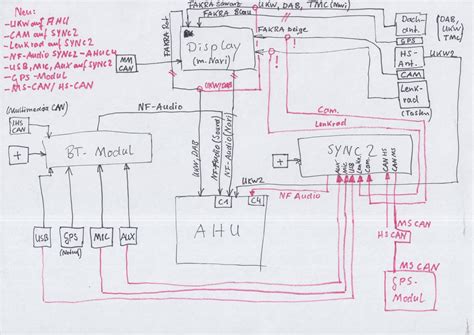 Neu:
- UKW auf AHU
- CAM auf SYNC2
- Lenkrad auf SYNC2
- NF-Audio SYNC2 - AHU C4
- USB, MIC, Aux auf SYNC2
- GPS-Modul
- MS-CAN/HS-CAN
FAKRA Rot
FAKRA Schwarz
FAKRA Blau
UKW, DAB, TMC (Navi)
Display
(m. Navi)
FAKRA Beige
MM
CAN
!
!
Dach-
ant.
GPS
HS-
Ant.
CAM
Lenk-
rad
(Tasten)
DAB,
UKW
TMC
UKW2
(Multimedia CAN)
IHS
CAN
NF-Audio
UKW/DAB
Cam.
Lenkrad
+
BT-Modul
UKW, DAB
NF-Audio (Sound)
NF-Audio (Navi)
UKW2
NF Audio
+
SYNC2
Aux
Mic
USB
Lenkr.
Cam.
CAN HS
CAN MS
C1
C4
AHU
USB
GPS
MIC
AUX
MS CAN
HS CAN
MS CAN
GPS-
Modul